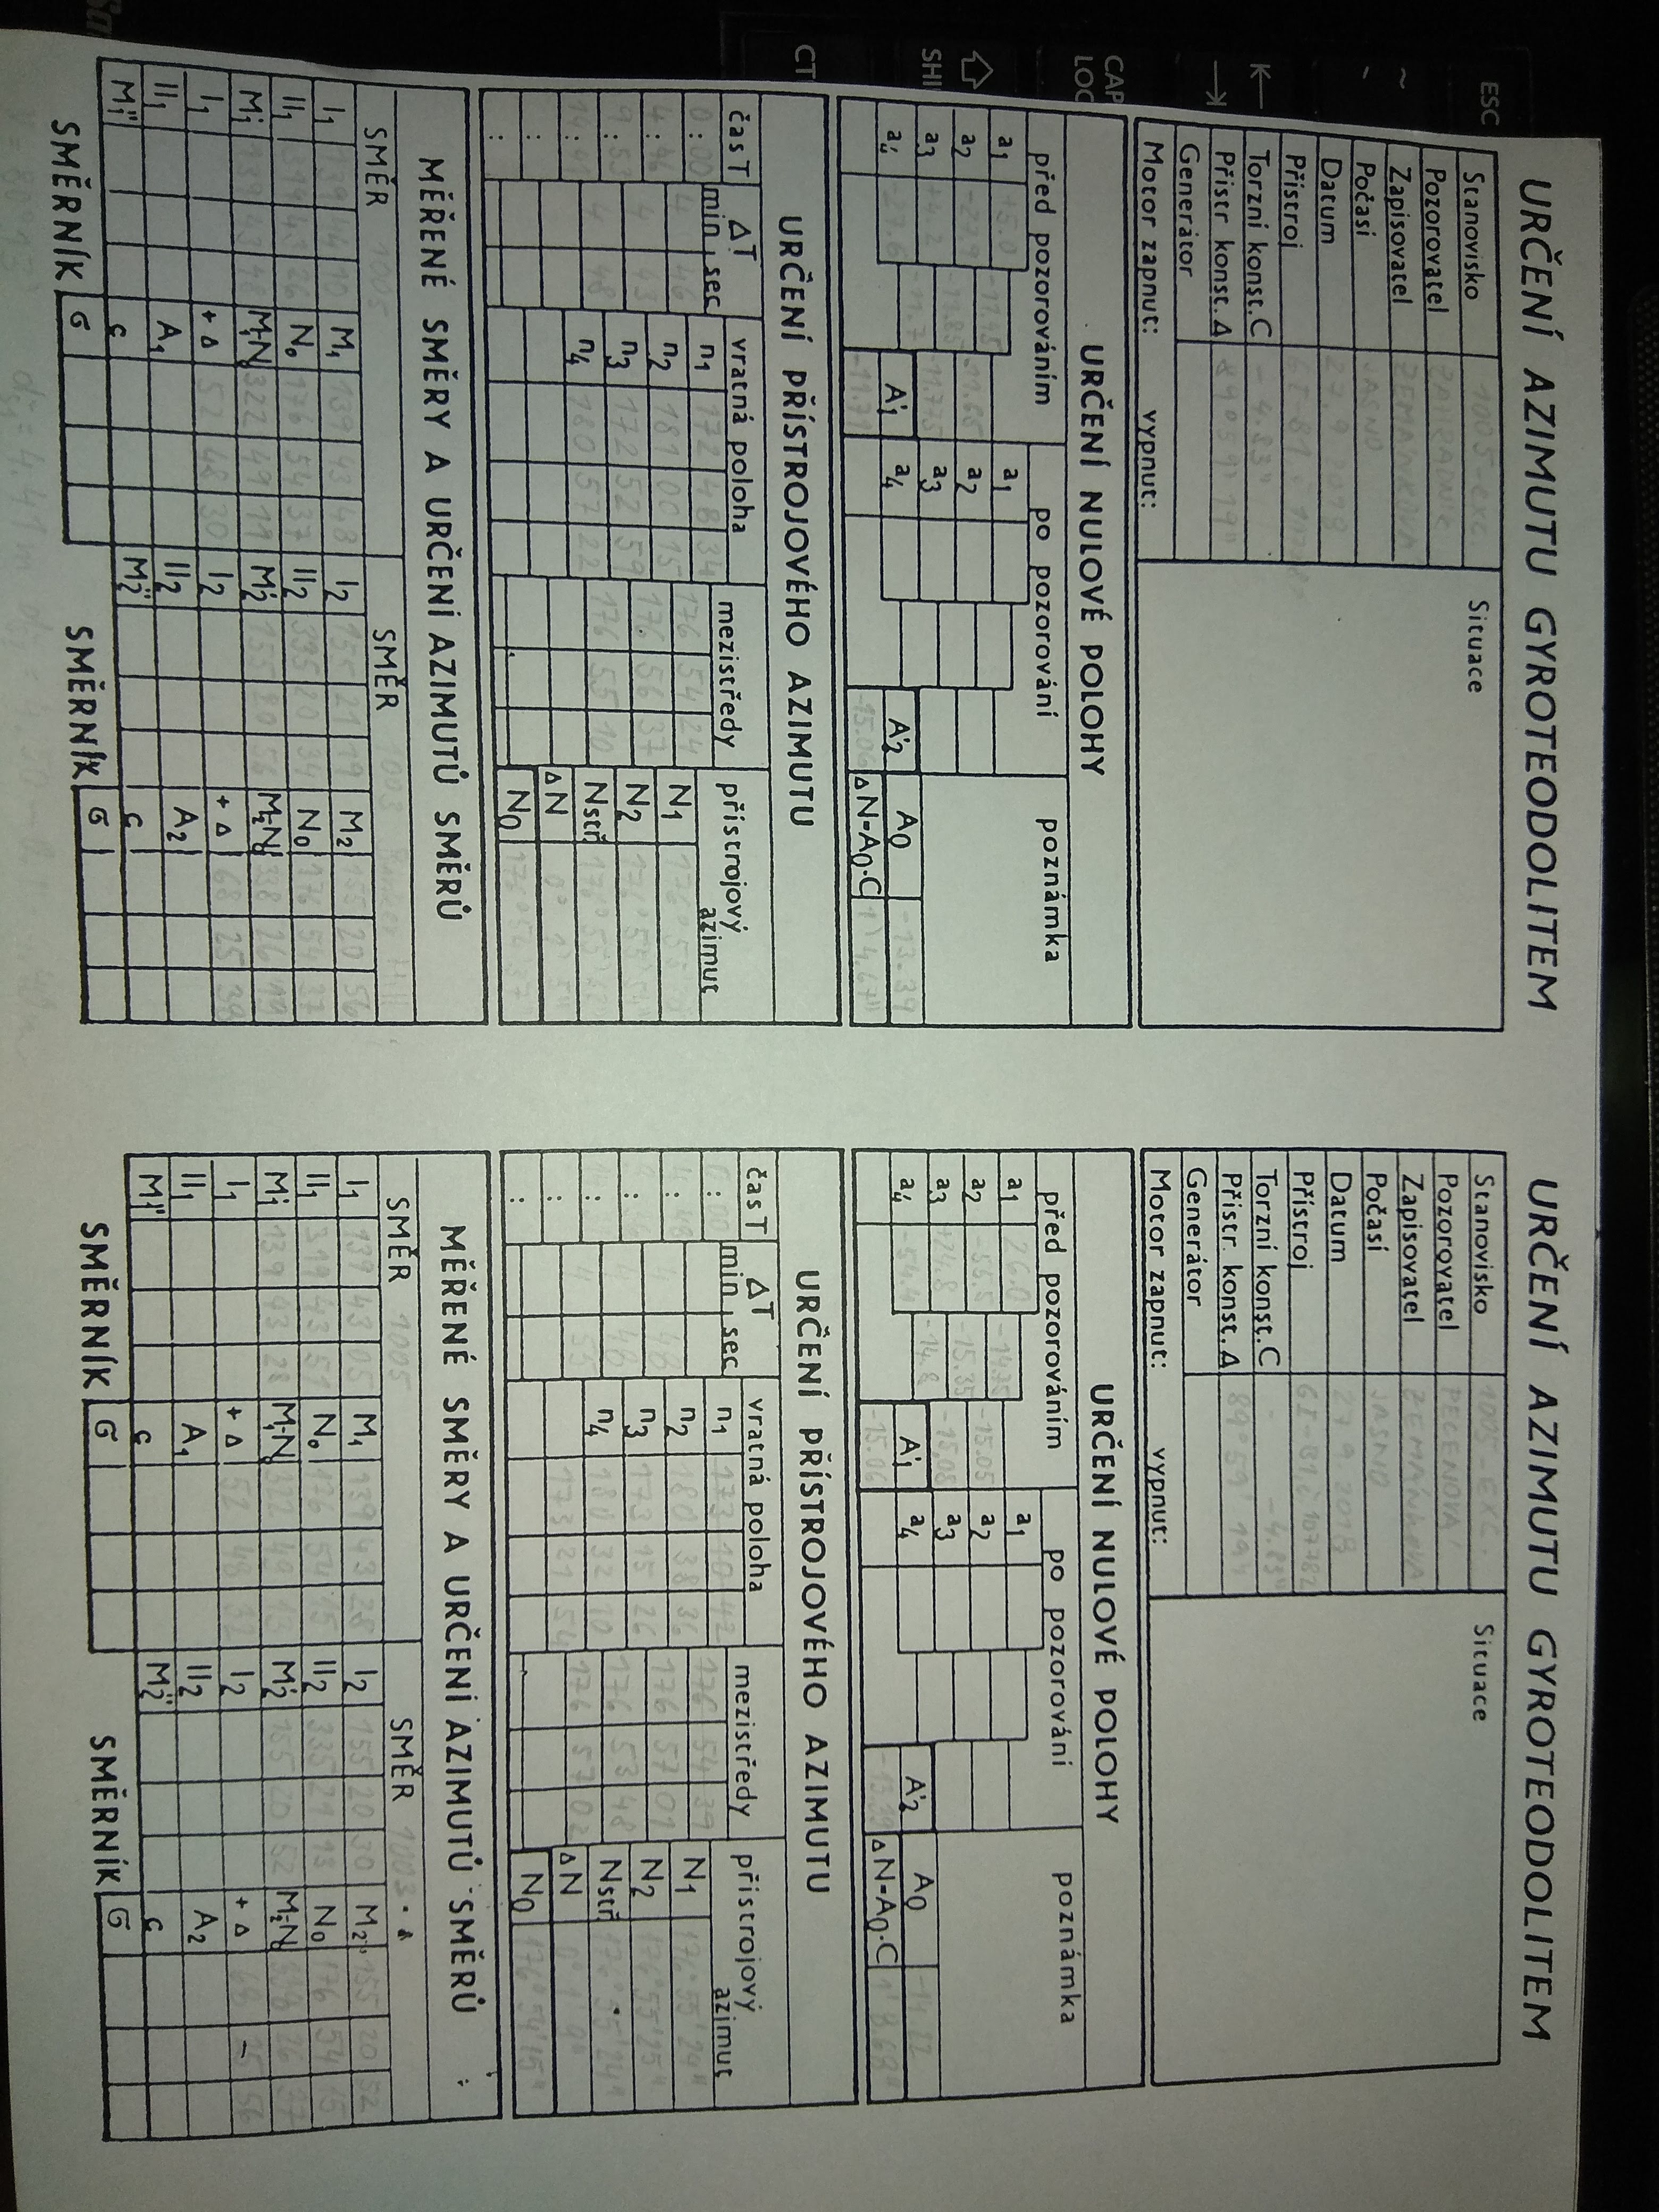 URČENÍ AZIMUTU GYROTEODOLITEM
Stanovisko 1005-exc.
Pozorovatel
Zapisovatel ZEMÁNKOVÁ
Počasí JASNO
Datum 27.9.2018
Přístroj
Torzní konst. C -4.83"
Přístr konst. Δ 89°59'19"
Generátor
Motor zapnut: vypnut:
Situace
URČENÍ NULOVÉ POLOHY
před pozorováním po pozorování poznámka
a1 +5.0 -11.45 -11.65 a1
a2 -27.9 -11.85 -11.775 a2
a3 +4.2 -11.7 a3
a4 -27.6 A'1 a4 A'2 A0 -13.39
-11.71 -15.06 ΔN=A0.C 1'4.67"
URČENÍ PŘÍSTROJOVÉHO AZIMUTU
čas T ΔT min sec vratná poloha mezistředy přístrojový azimut
0:00 4 46 n1 172 48 34 176 54 24 N1
4:46 4 43 n2 181 00 15 176 56 37 N2
9:53 4 48 n3 172 52 59 176 55 10 Nstř
n4 180 57 22 ΔN
: N0
MĚŘENÉ SMĚRY A URČENÍ AZIMUTŮ SMĚRŮ
SMĚR 1005 SMĚR 1003
I1 139 44 10 M1 139 43 48 I2 155 21 19 M2 155 20 56
II1 319 43 26 N0 176 54 37 II2 335 20 34 N0 176 54 37
M'1 139 43 48 M1-N0 322 49 11 M'2 155 20 56 M2-N0 338 26 19
I1 +Δ 52 48 30 I2 +Δ 68 25 39
II1 A1 II2 A2
M"1 c M"2 c
SMĚRNÍK G SMĚRNÍK G
URČENÍ AZIMUTU GYROTEODOLITEM
Stanovisko 1005-EXC.
Pozorovatel PECENOVÁ
Zapisovatel ZEMÁNKOVÁ
Počasí JASNO
Datum 27.9.2018
Přístroj Gi-B1, č. 107782
Torzní konst. C -4.83"
Přístr. konst. Δ 89°59'19"
Generátor
Motor zapnut: vypnut:
Situace
URČENÍ NULOVÉ POLOHY
před pozorováním po pozorování poznámka
a1 26.0 -14.75 -15.05 a1
a2 -55.5 -15.35 -15.08 a2
a3 +24.8 -14.8 a3
a4 -54.4 A'1 a4 A'2 A0 -14.22
-15.06 -13.39 ΔN=A0.C 1'8.68"
URČENÍ PŘÍSTROJOVÉHO AZIMUTU
čas T ΔT min sec vratná poloha mezistředy přístrojový azimut
0:00 4 46 n1 173 10 42 176 54 39 N1 176°55'
4:46 4 46 n2 180 38 36 176 57 01 N2 176°55'25"
: n3 173 15 26 176 53 48 Nstř 176°55'24"
: 4 55 n4 180 32 10 176 57 02 ΔN 0°1'9"
: 173 21 54 N0 176°54'15"
MĚŘENÉ SMĚRY A URČENÍ AZIMUTŮ SMĚRŮ
SMĚR 1005 SMĚR 1003
I1 139 43 05 M1 139 43 28 I2 155 20 30 M2 155 20 52
II1 319 43 51 N0 176 54 15 II2 335 21 13 N0 176 54 15
M'1 139 43 28 M1-N0 322 49 13 M'2 155 20 52 M2-N0 338 26 37
I1 +Δ 52 48 32 I2 +Δ 68 25 56
II1 A1 II2 A2
M"1 c M"2 c
SMĚRNÍK G SMĚRNÍK G
ESC
CAP
LOC
SHI
CT